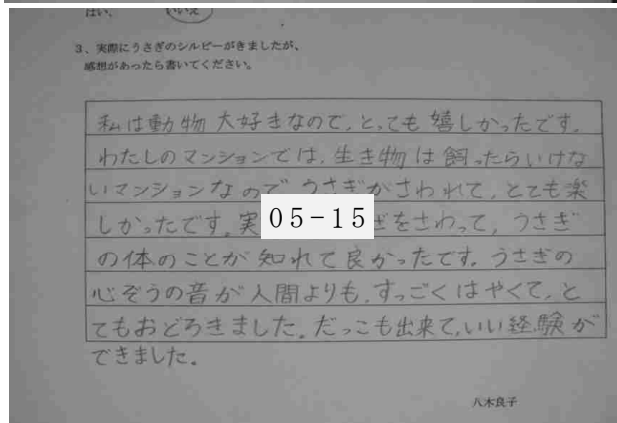 はい、 いいえ
3、実際にうさぎのシルビーがきましたが、
感想があったら書いてください。
私は動物大好きなので、とっても嬉しかったです。
わたしのマンションでは、生き物は飼ったらいけな
いマンションなので、うさぎがさわれて、とても楽
しかったです。実 05-15 ぎをさわって、うさぎ
の体のことが知れて良かったです。うさぎの
心ぞうの音が人間よりも、すっごくはやくて、と
てもおどろきました。だっこも出来て、いい経験が
できました。
八木良子